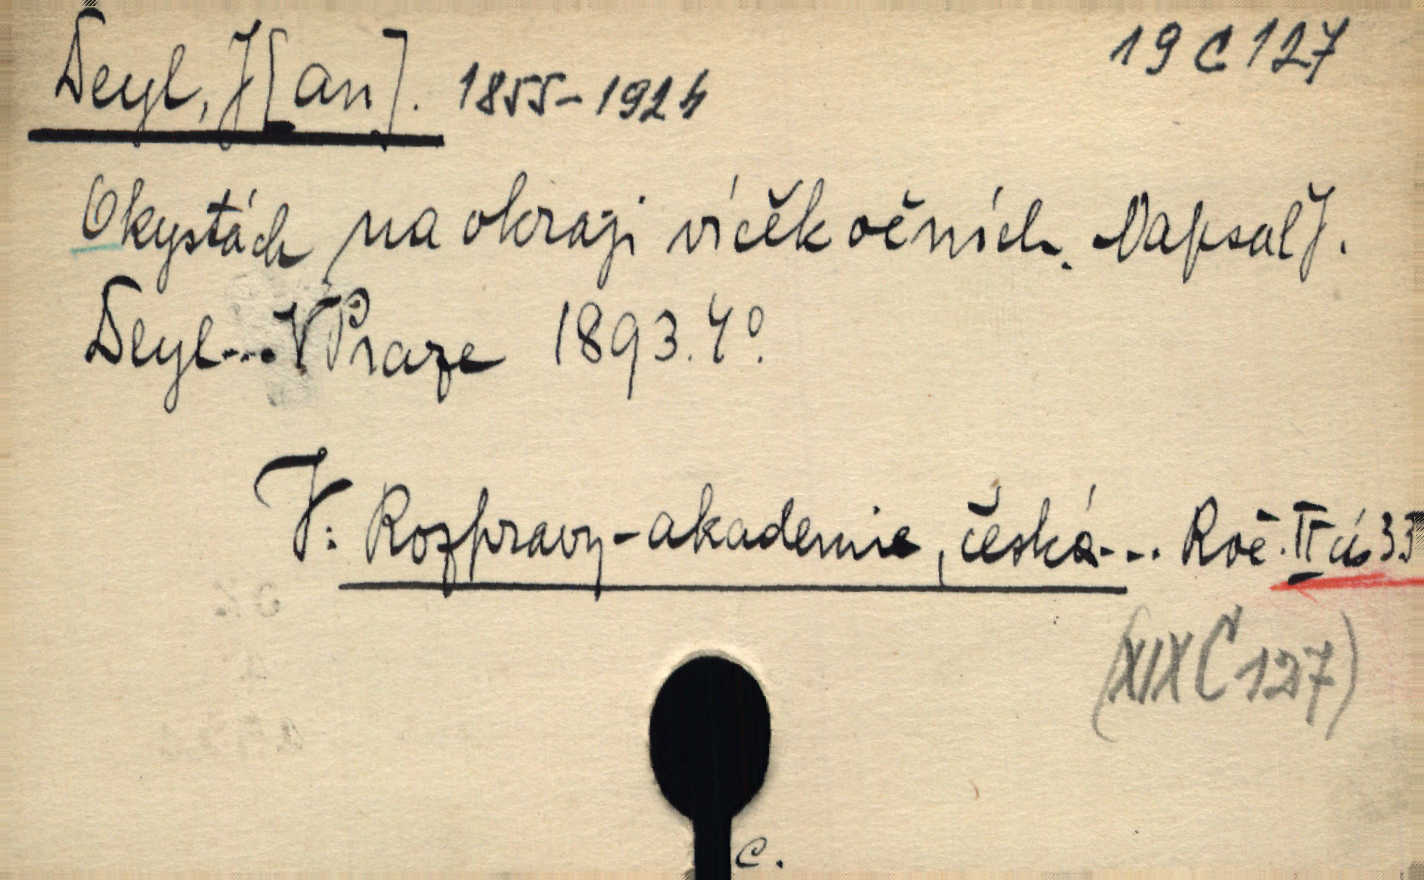 19 C 127
Deyl, J[an]. 1855-1924
O kystách na okraji víček očních. Napsal J.
Deyl... V Praze 1893. 4°.
V: Rozpravy - akademie, česká... Roč. II čís 33
(XIX C 127)
c.